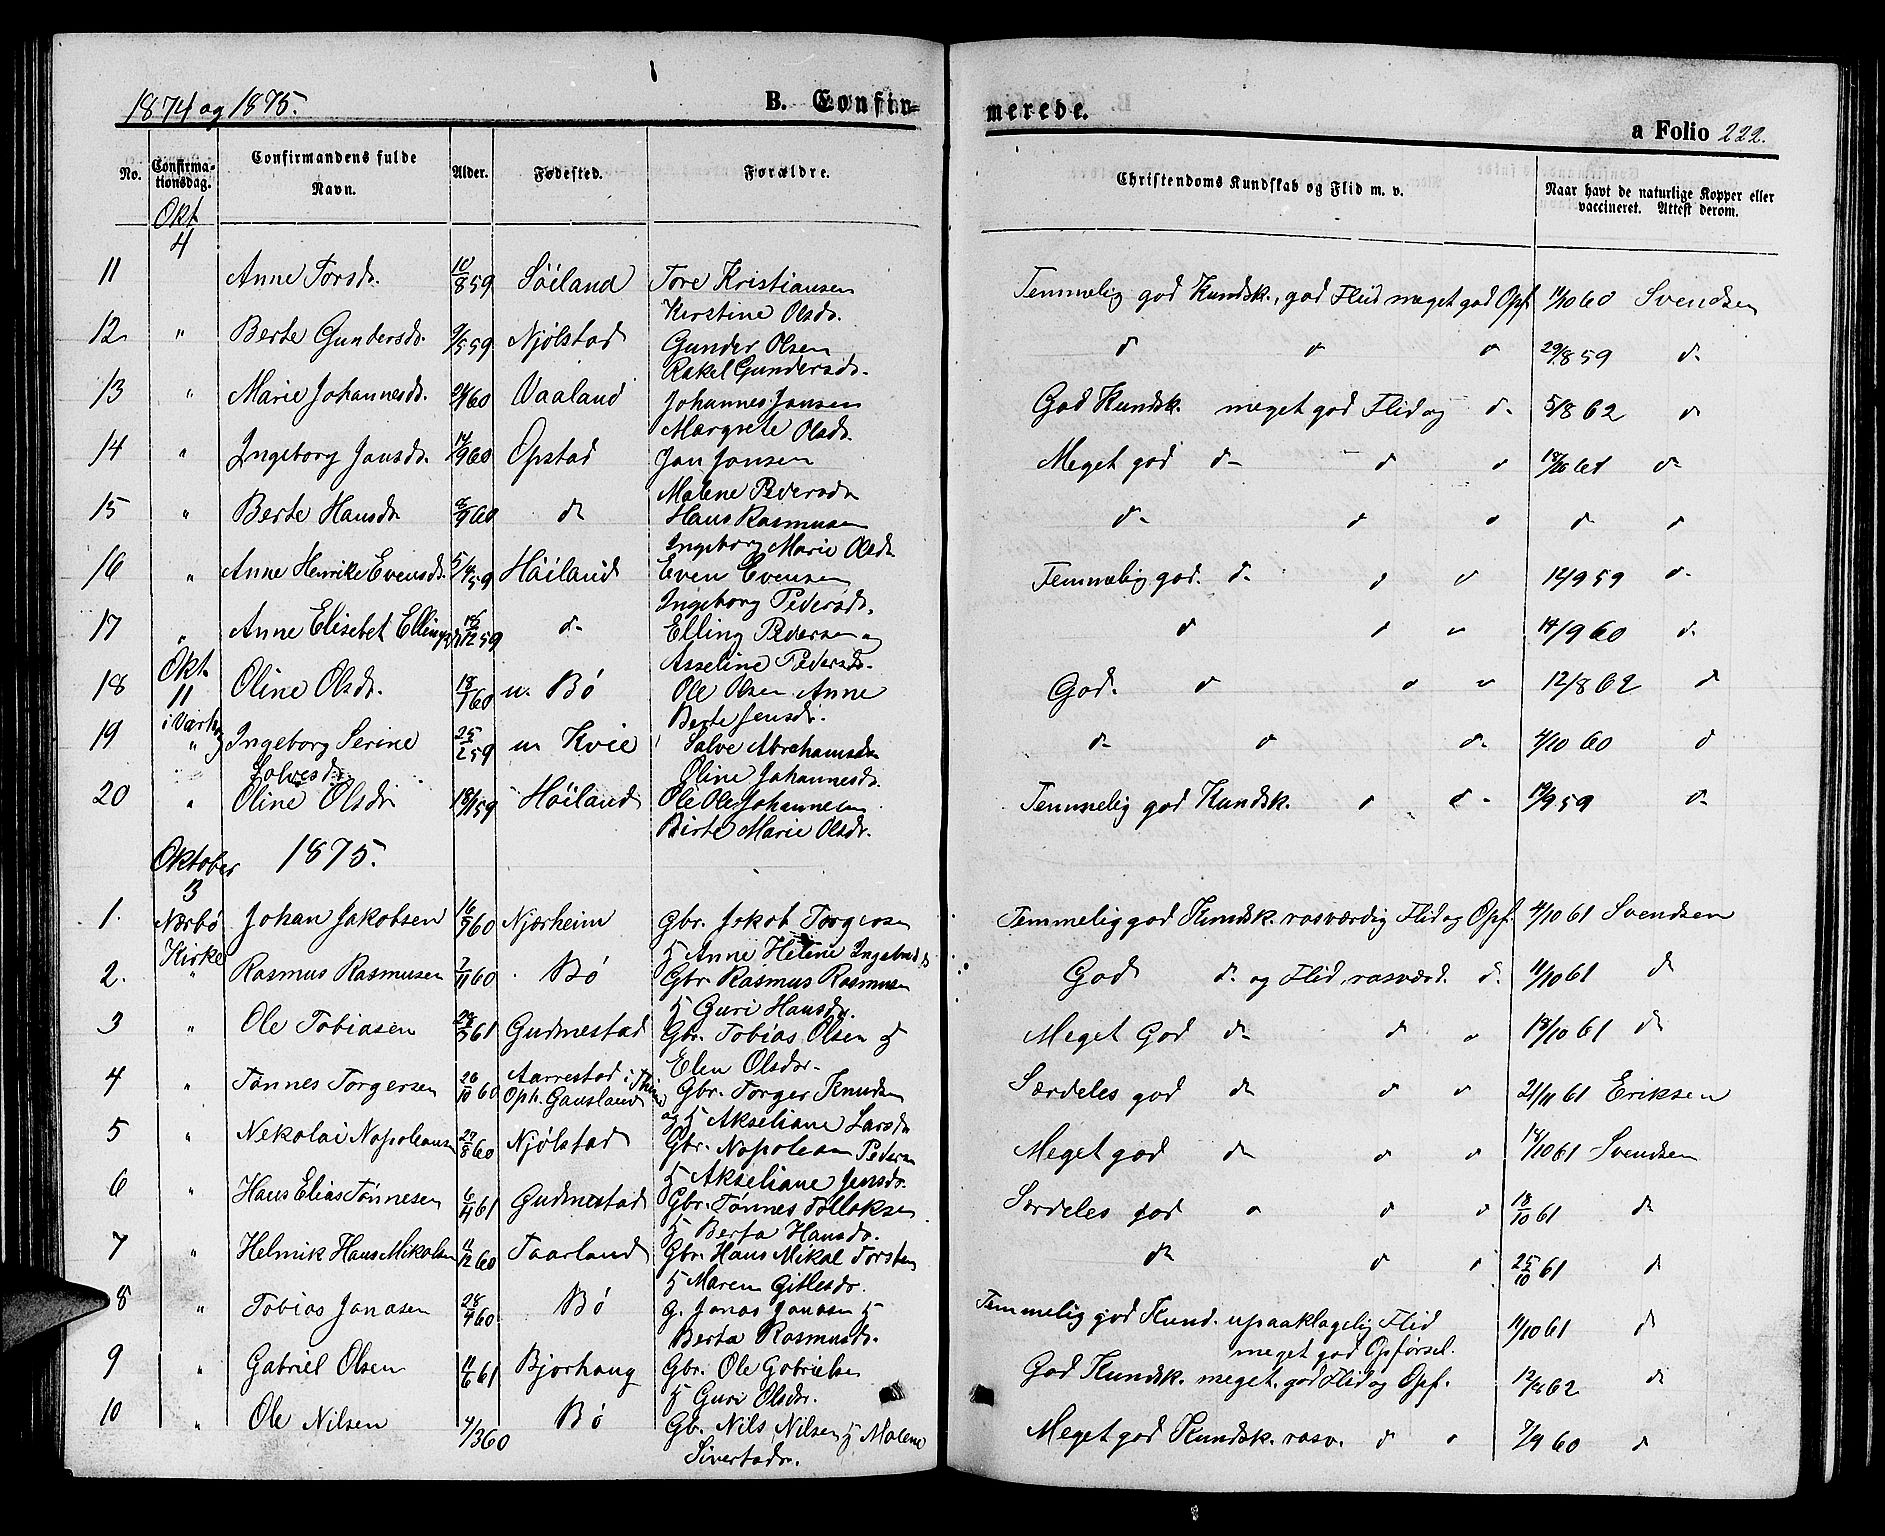 1874 og 1875.
B. Confir=
merede.
a Folio 222.
No.
Confirma-
tionsdag.
Confirmandens fulde
Navn.
Alder.
Fødested.
Forældre.
Christendoms Kundskab og Flid m. v.
Naar havt de naturlige Kopper eller
vaccineret. Attest derom.
Okt
4
11 Anne Torsdr. 10/8 59 Söiland Tore Kristiansen
Kerstine Olsdr.
Temmelig god Kundsk., god Flid meget god Opf. 11/10 60 Svendsen
12 " Berte Gundersdr. 9/5 59 Njølstad Gunder Olsen
Rakel Gundersdr.
d d d 29/8 59 d-
13 " Marie Johannesdr. Vaaland Johannes Jansen
Margrete Olsdr.
God Kundsk. meget god Flid og d- 5/8 62 d
14 " Ingeborg Jansdr. 14/9 60 Opstad Jan Jansen
Malene Pedersdr
Meget god d- d d 18/10 61 d-
15 " Berte Hansdr 8/9 60 d- Hans Rasmusen
Ingeborg Marie Olsdr
d- d d d d
16 " Anne Henrike Evensdr. 5/4 59 Höiland Even Evensen
Ingeborg Pedersdr.
Temmelig god. d- d d 12/9 59 d-
17 " Anne Elisebet Ellingsdr 18/12 59 d- Elling Pedersen og
Asseline Pedersdr.
d d " 14/9 60 d-
Okt.
18 11 Oline Olsdr. 18/1 60 u. Bö Ole Olsen Anne
Berte Jensdr.
God. d d " 12/8 62 d
i Varh
19 " Ingeborg Serine 25/2 59 u Kvie Salve Abrahamsen
Salvesdr. Oline Johannesdr.
d- d d- 4/10 60 d
20 " Oline Olsdr 18/1 59 Höiland Ole Ole Johannesen
Birte Marie Olsdr.
Temmelig god Kundsk. d d- 19/9 59 d-
Oktober 1875.
3
1. Nærbö Johan Jakobsen 16/5 60 Njærheim Gbr. Jakob Torgersen
Kirke H Anne Helene Ingebretsdr
Temmelig god Kundsk. rosværdig Flid og Opf. 4/10 61 Svendsen
2. " Rasmus Rasmusen 7/11 60 Bö Gbr. Rasmus Rasmusen
H Guri Hansdr.
God d- og Flid, rosværd. d. 11/10 61 d
3 " Ole Tobiasen 28/3 61 Gudmestad Gbr. Tobias Olsen H
Elen Olsdr.
Meget God d- d " 18/10 61 d-
4 " Tönnes Torgersen 26/10 60 Aarrestad i Thime
Oph. Gausland Gbr. Torger Knudsen
og H Akseliane Larsdr
Særdeles god d- d d 21/11 61 Eriksen
5 " Nekolai Napoleansen 27/8 60 Njölstad Gbr. Napolean Pedersen
H Akseliane Jensdr.
Meget god d- d d 14/10 61 Svendsen
6 " Hans Elias Tönnesen 6/4 61 Gudmestad Gbr. Tönnes Tollaksen
H Berta Hansdr.
Særdeles god d d d 18/10 61 d
7 " Helmik Hans Mikalsen 11/12 60 Taarland Gbr. Hans Mikal Torsten
H Maren Gitlesdr.
d- d d 25/10 61 d
8 " Tobias Janasen 28/4 60 Bö G. Janas Janasen H
Berta Rasmusdr.
Temmelig god Kund. upaaklagelig Flid
meget god Opförsel. 11/10 61 d
9 " Gabriel Olsen 11/6 61 Bjorhaug Gbr. Ole Gabrielsen
H Guri Olsdr.
God Kundsk. meget god Flid og Opf. 12/8 62 d
10 " Ole Nilsen 4/3 60 Bö Gb. Nils Nilsen H Malene
Sivertsdr.
Meget god Kundsk. rosv. d d 7/9 60 d